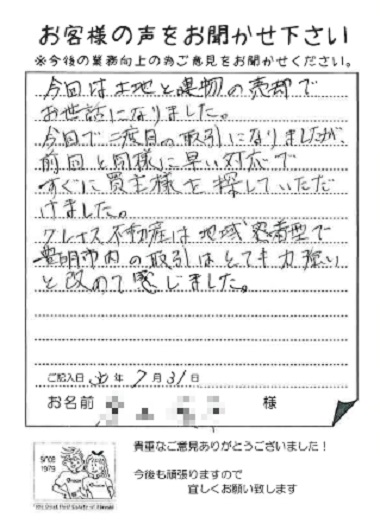 お客様の声をお聞かせ下さい
※今後の業務向上の為ご意見をお聞かせください。
今回は土地と建物の売却で
お世話になりました。
今回で二度目の取引になりましたが、
前回と同様に早い対応で
すぐに買主様を探していただ
けました。
クレイス不動産は地域密着型で
豊明市内の取引はとても力強い
と改めて感じました。
ご記入日 年 7 月 31 日
お名前 様
since
1979
貴重なご意見ありがとうございました！
今後も頑張りますので
宜しくお願い致します